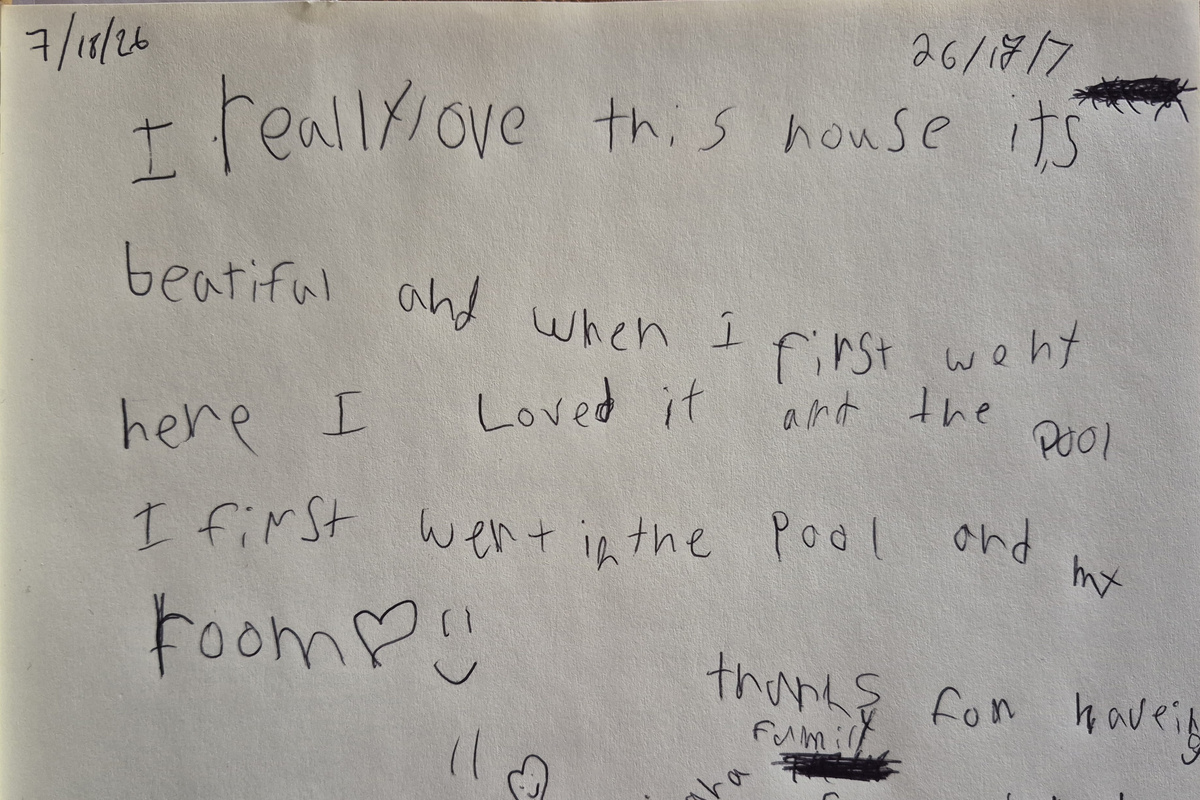 7/18/26 26/18/7
I really love this house it's
beatiful and when I first went
here I Loved it and the Pool
I first went in the Pool and my
room♡
thanks for haveing
family